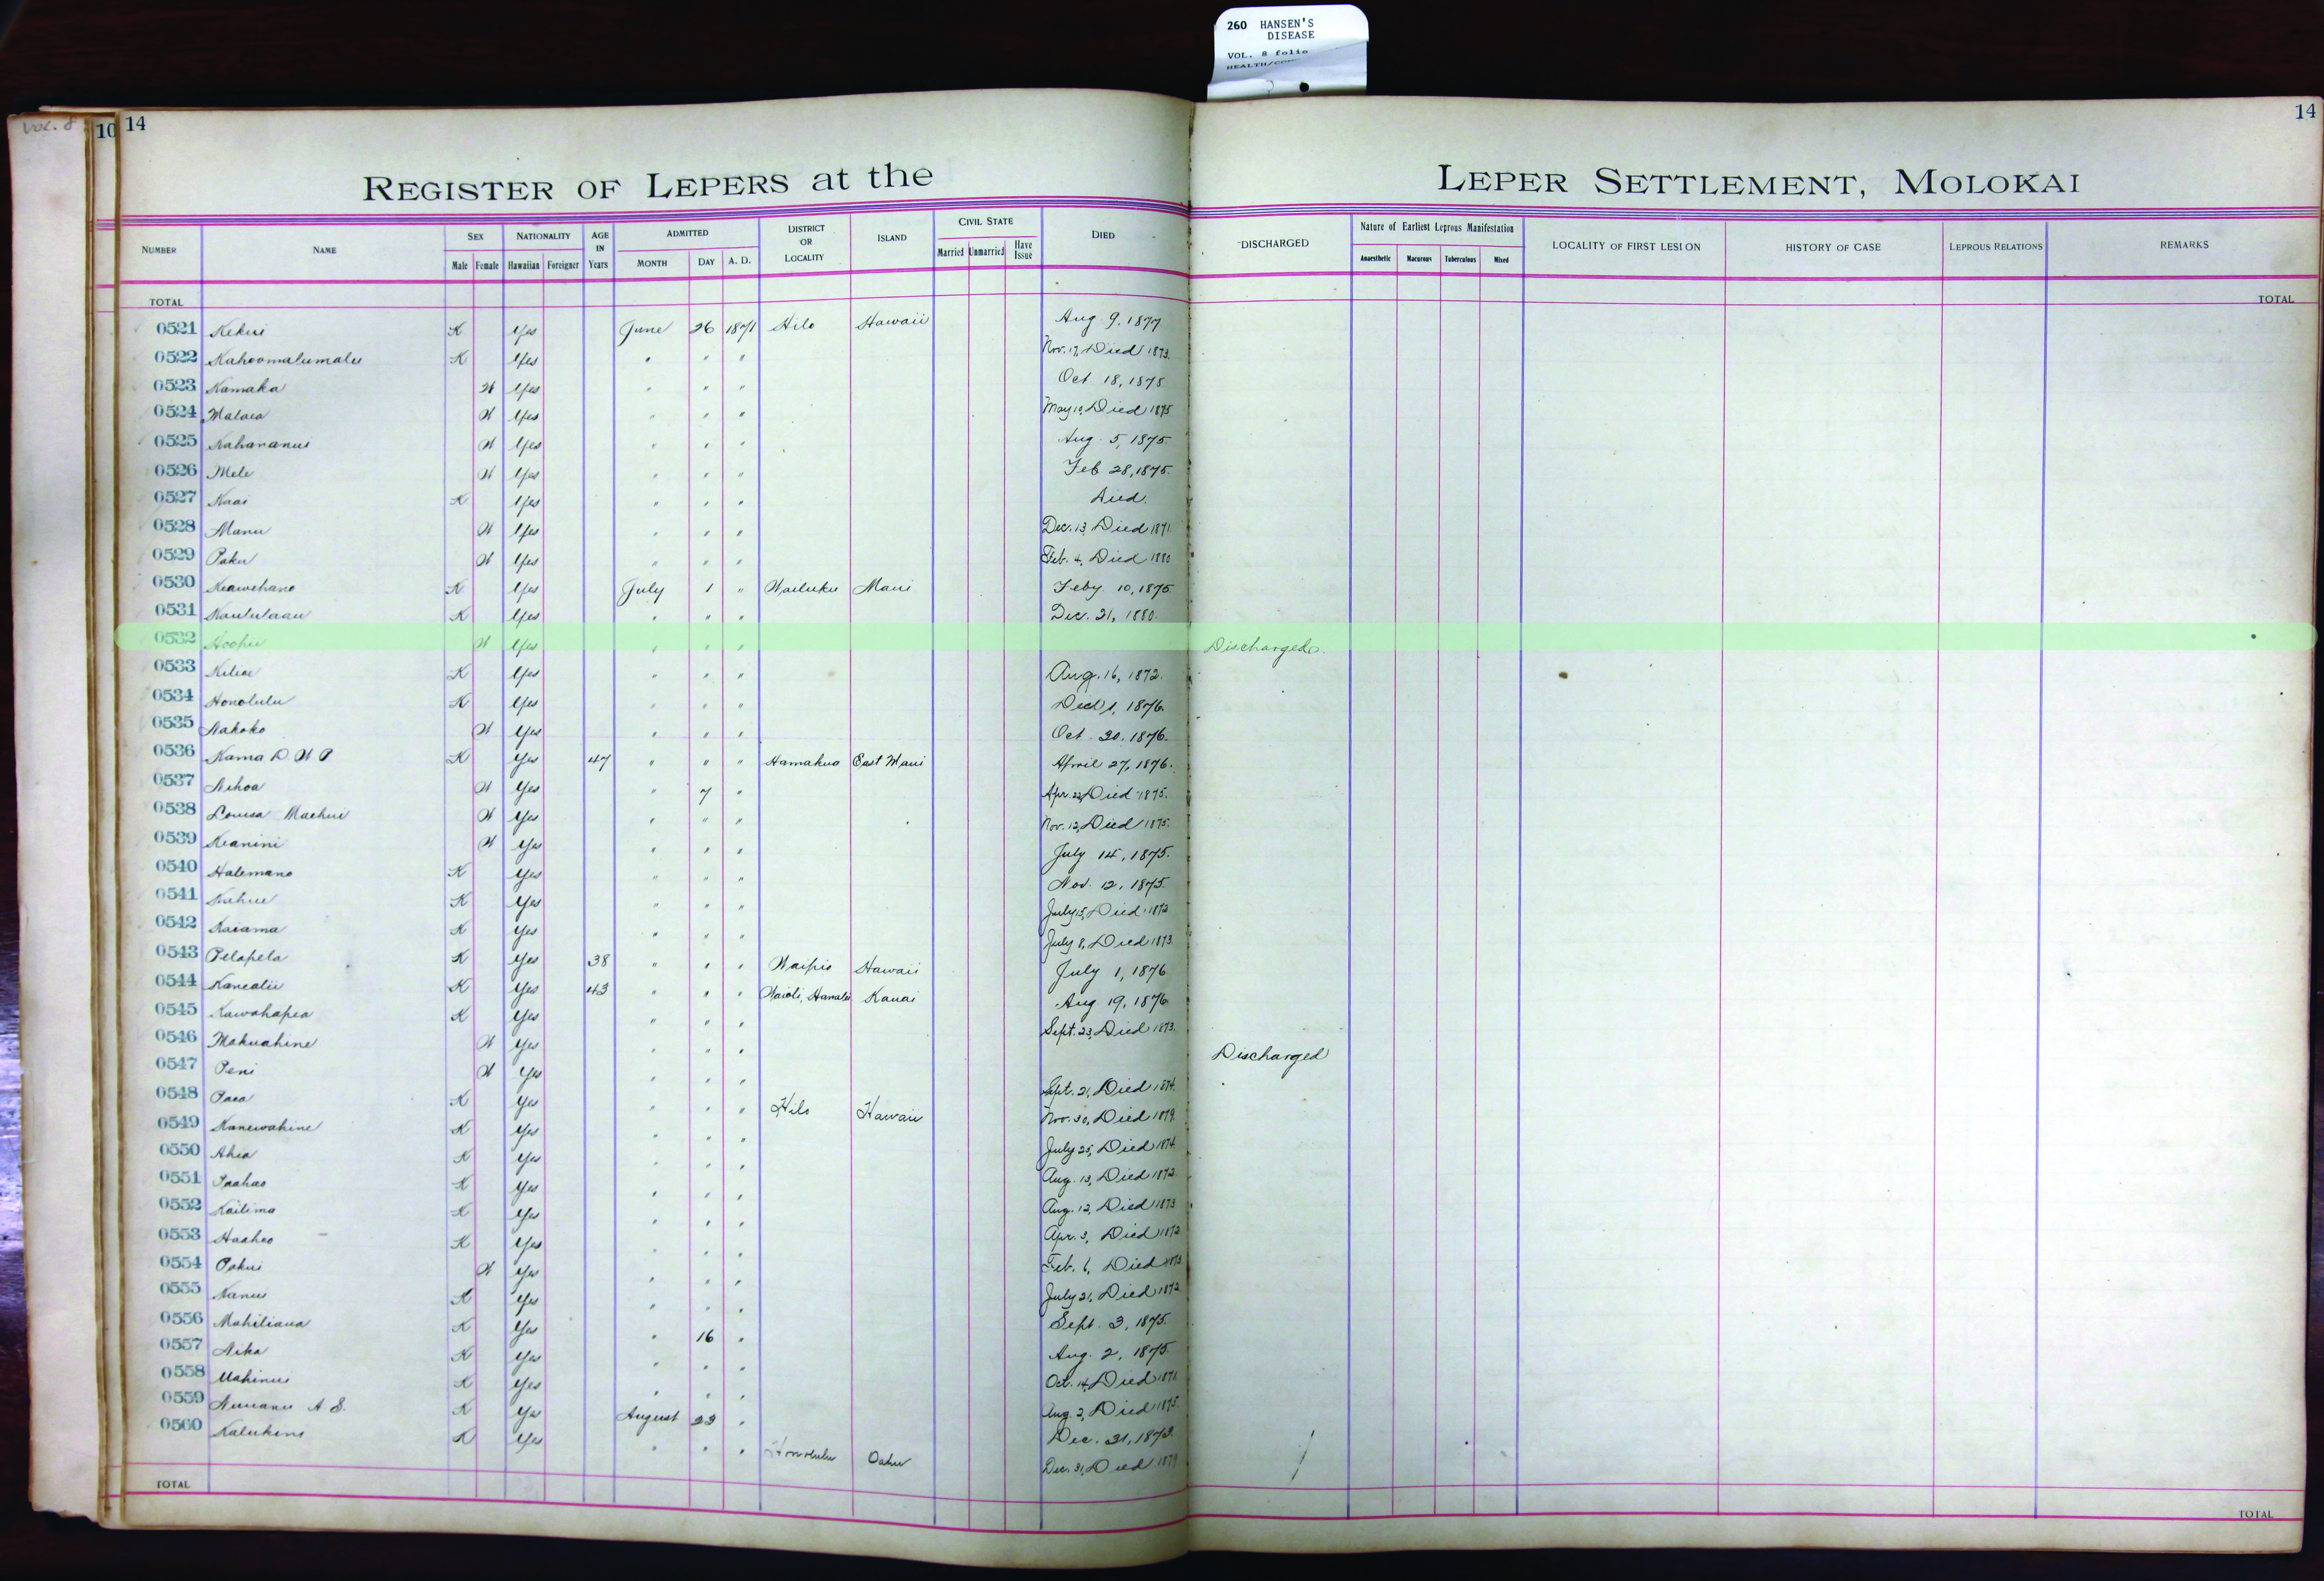 260 HANSEN'S
DISEASE
VOL. 8 folio
VOL. 8
10 14
14
REGISTER OF LEPERS at the LEPER SETTLEMENT, MOLOKAI
NUMBER NAME SEX NATIONALITY AGE IN Years ADMITTED DISTRICT OR LOCALITY ISLAND CIVIL STATE DIED DISCHARGED Nature of Earliest Leprous Manifestation LOCALITY OF FIRST LESION HISTORY OF CASE LEPROUS RELATIONS REMARKS
Male Female Hawaiian Foreigner MONTH DAY A. D. Married Unmarried Have Issue Anaesthetic Macurous Tuberculous Mixed
TOTAL TOTAL
0521 Kekui K Yes June 26 1871 Hilo Hawaii Aug 9, 1877
0522 Kahoomalumalu K Yes " " " Nov. 17, Died 1873.
0523 Kamaka W Yes " " " Oct 18, 1875
0524 Malaea W Yes " " " May 10, Died 1875
0525 Nahananui W Yes " " " Aug. 5, 1875.
0526 Mele W Yes " " " Feb 28, 1875.
0527 Kaai K Yes " " " Died.
0528 Manu W Yes " " " Dec. 13, Died 1871
0529 Paku W Yes " " " Feb. 4, Died 1880
0530 Keawehano K Yes July 1 " Wailuku Maui Feby 10, 1875
0531 Kaululaau K Yes " " " Dec. 21, 1880.
0532 Hoohu W Yes " " " Discharged.
0533 Kiliae K Yes " " " Aug. 16, 1872.
0534 Honolulu K Yes " " " 1, 1876.
0535 Nakoko W Yes " " " Oct. 20, 1876.
0536 Kama D. W P K Yes 47 " " " Hamakua East Maui April 27, 1876.
0537 Nihoa W Yes " 7 " Apr. 22, Died 1875.
0538 Louisa Maehui W Yes " " " Nov. 12, Died 1875.
0539 Keanini W Yes " " " July 14, 1875.
0540 Halemano K Yes " " " Nov. 12, 1875.
0541 Kahue K Yes " " " July 15, Died 1872
0542 Kaiama K Yes " " " July 8, Died 1873.
0543 Pelapela K Yes 38 " " " Waipio Hawaii July 1, 1876
0544 Kanealii K Yes 43 " " " Waioli, Hanalei Kauai Aug 19, 1876
0545 Kawahapea K Yes " " " Sept. 23, Died 1873.
0546 Makuahine W Yes " " " Discharged
0547 Peni W Yes " " " Sept. 21, Died 1874.
0548 Paea K Yes " " " Hilo Hawaii Nov. 30, Died 1879.
0549 Kanewahine K Yes " " " July 25, Died 1874.
0550 Ahia K Yes " " " Aug. 13, Died 1872.
0551 Paahao K Yes " " " Aug. 12, Died 1873
0552 Kailima K Yes " " " Apr. 3, Died 1872
0553 Haaheo K Yes " " " Feb. 6, Died 1873
0554 Pakui W Yes " " " July 21, Died 1872
0555 Nanui K Yes " " " Sept. 3, 1875.
0556 Mahiliaua K Yes " 16 " Aug. 2, 1875.
0557 Nika K Yes " " " Oct. 14, Died 1871
0558 Mahinui K Yes " " " Aug. 2, Died 1875.
0559 Nuuanu A S. K Yes August 23 " Dec. 31, 1873.
0560 Kalukini K Yes " " " Honolulu Oahu Dec. 31, Died 1879
TOTAL TOTAL